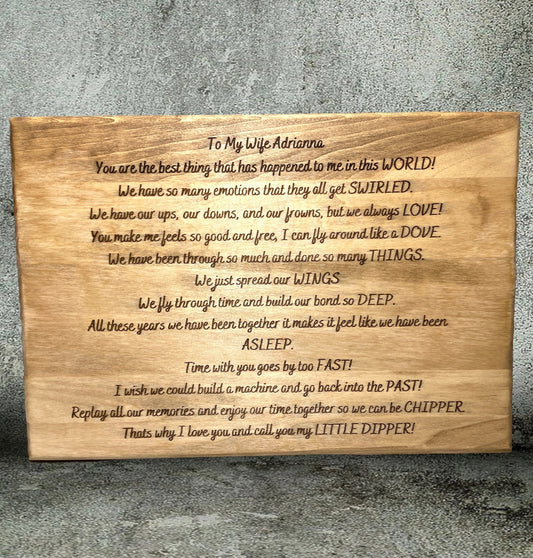 To My Wife Adrianna
You are the best thing that has happened to me in this WORLD!
We have so many emotions that they all get SWIRLED.
We have our ups, our downs, and our frowns, but we always LOVE!
You make me feels so good and free, I can fly around like a DOVE.
We have been through so much and done so many THINGS.
We just spread our WINGS
We fly through time and build our bond so DEEP.
All these years we have been together it makes it feel like we have been
ASLEEP.
Time with you goes by too FAST!
I wish we could build a machine and go back into the PAST!
Replay all our memories and enjoy our time together so we can be CHIPPER.
Thats why I love you and call you my LITTLE DIPPER!